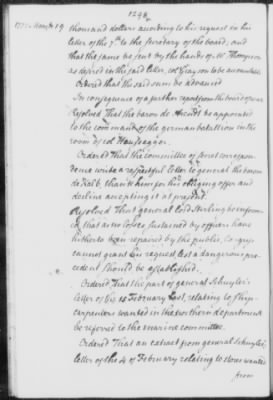 1298
1777. March 19
thousand dollars according to his request in his
letter of the 7th to the secretary of the board, and
that the same be sent by the hands of Mr Thompson
as desired in the said letter, col Grayson to be accountable
Ordered that the said sum be advanced
In consequence of a farther report from the board of war
Resolved That the baron de Arendt be appointed
to the command of the german battalion in the
room of col Hausegger.
Ordered That the committee of secret correspon-
dence write a respectful letter to general the baron
de Kalb, thank him for his obliging offer and
decline accepting it at present.
Resolved That general lord Sterling be inform-
ed that as no losses sustained by officers have
hitherto been repaired by the public, Congress
cannot grant his request lest a dangerous pre-
cedent should be established.
Ordered That the part of general Schuyler's
letter of the 15 February last, relating to ship-
carpenters wanted in the northern department
be referred to the marine committee.
Ordered That an extract from general Schuyler's
letter of the 4 of February relating to stores wanted
from